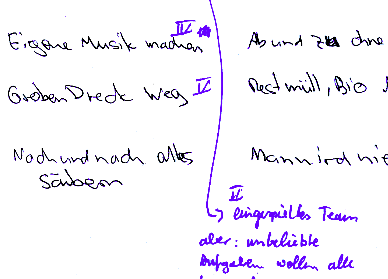 Eigene Musik machen IV
Groben Dreck weg IV
Nach und nach alles
säubern
Ab und zu ohne
Restmüll, Bio
Man wird nie
II
eingespieltes Team
aber: unbeliebte
Aufgaben wollen alle